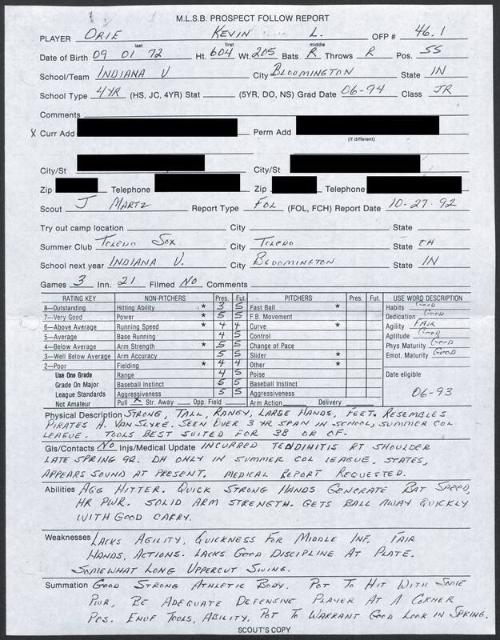 M.L.S.B. PROSPECT FOLLOW REPORT
PLAYER ORIE KEVIN L. OFP # 46.1
last first middle
Date of Birth 09 01 72 Ht. 604 Wt. 205 Bats R Throws R Pos. SS
School/Team INDIANA U City BLOOMINGTON State IN
School Type 4YR (HS, JC, 4YR) Stat (5YR, DO, NS) Grad Date 06-94 Class JR
Comments
X Curr Add Perm Add
(if different)
City/St City/St
Zip Telephone Zip Telephone
Scout J MARTZ Report Type FOL (FOL, FCH) Report Date 10-27-92
Try out camp location City State
Summer Club TOLEDO SOX City TOLEDO State OH
School next year INDIANA U. City BLOOMINGTON State IN
Games 3 Inn. 21 Filmed NO Comments
RATING KEY NON-PITCHERS Pres. Fut. PITCHERS Pres. Fut. USE WORD DESCRIPTION
8—Outstanding Hitting Ability * 3 5 Fast Ball * Habits GOOD
7—Very Good Power * 5 5 F.B. Movement Dedication GOOD
6—Above Average Running Speed * 4 4 Curve * Agility FAIR
5—Average Base Running 4 5 Control Aptitude GOOD
4—Below Average Arm Strength * 5 5 Change of Pace Phys Maturity GOOD
3—Well Below Average Arm Accuracy 5 5 Slider * Emot. Maturity GOOD
2—Poor Fielding * 4 4 Other *
Use One Grade Range 4 5 Poise Date eligible
Grade On Major Baseball Instinct 6 5 Baseball Instinct
League Standards Aggressiveness 5 5 Aggressiveness 06-93
Not Amateur Pull X Str. Away Opp. Field Arm Action Delivery
Physical Description STRONG, TALL, RANGY, LARGE HANDS, FEET. RESEMBLES
PIRATES A. VAN SLYKE. SEEN OVER 3 YR SPAN IN SCHOOL, SUMMER COL
LEAGUE. TOOLS BEST SUITED FOR 3B OR OF.
Gls/Contacts NO Injs/Medical Update INCURRED TENDINITIS RT SHOULDER
LATE SPRING 92. DH ONLY IN SUMMER COL LEAGUE. STATES,
APPEARS SOUND AT PRESENT. MEDICAL REPORT REQUESTED.
Abilities AGG HITTER. QUICK STRONG HANDS GENERATE BAT SPEED,
HR PWR. SOLID ARM STRENGTH. GETS BALL AWAY QUICKLY
WITH GOOD CARRY.
Weaknesses LACKS AGILITY, QUICKNESS FOR MIDDLE INF. FAIR
HANDS, ACTIONS. LACKS GOOD DISCIPLINE AT PLATE.
SOMEWHAT LONG UPPERCUT SWING.
Summation GOOD STRONG ATHLETIC BODY. POT TO HIT WITH SOME
PWR, BE ADEQUATE DEFENSIVE PLAYER AT A CORNER
POS. ENUF TOOLS, ABILITY. POT TO WARRANT GOOD LOOK IN SPRING.
SCOUT'S COPY